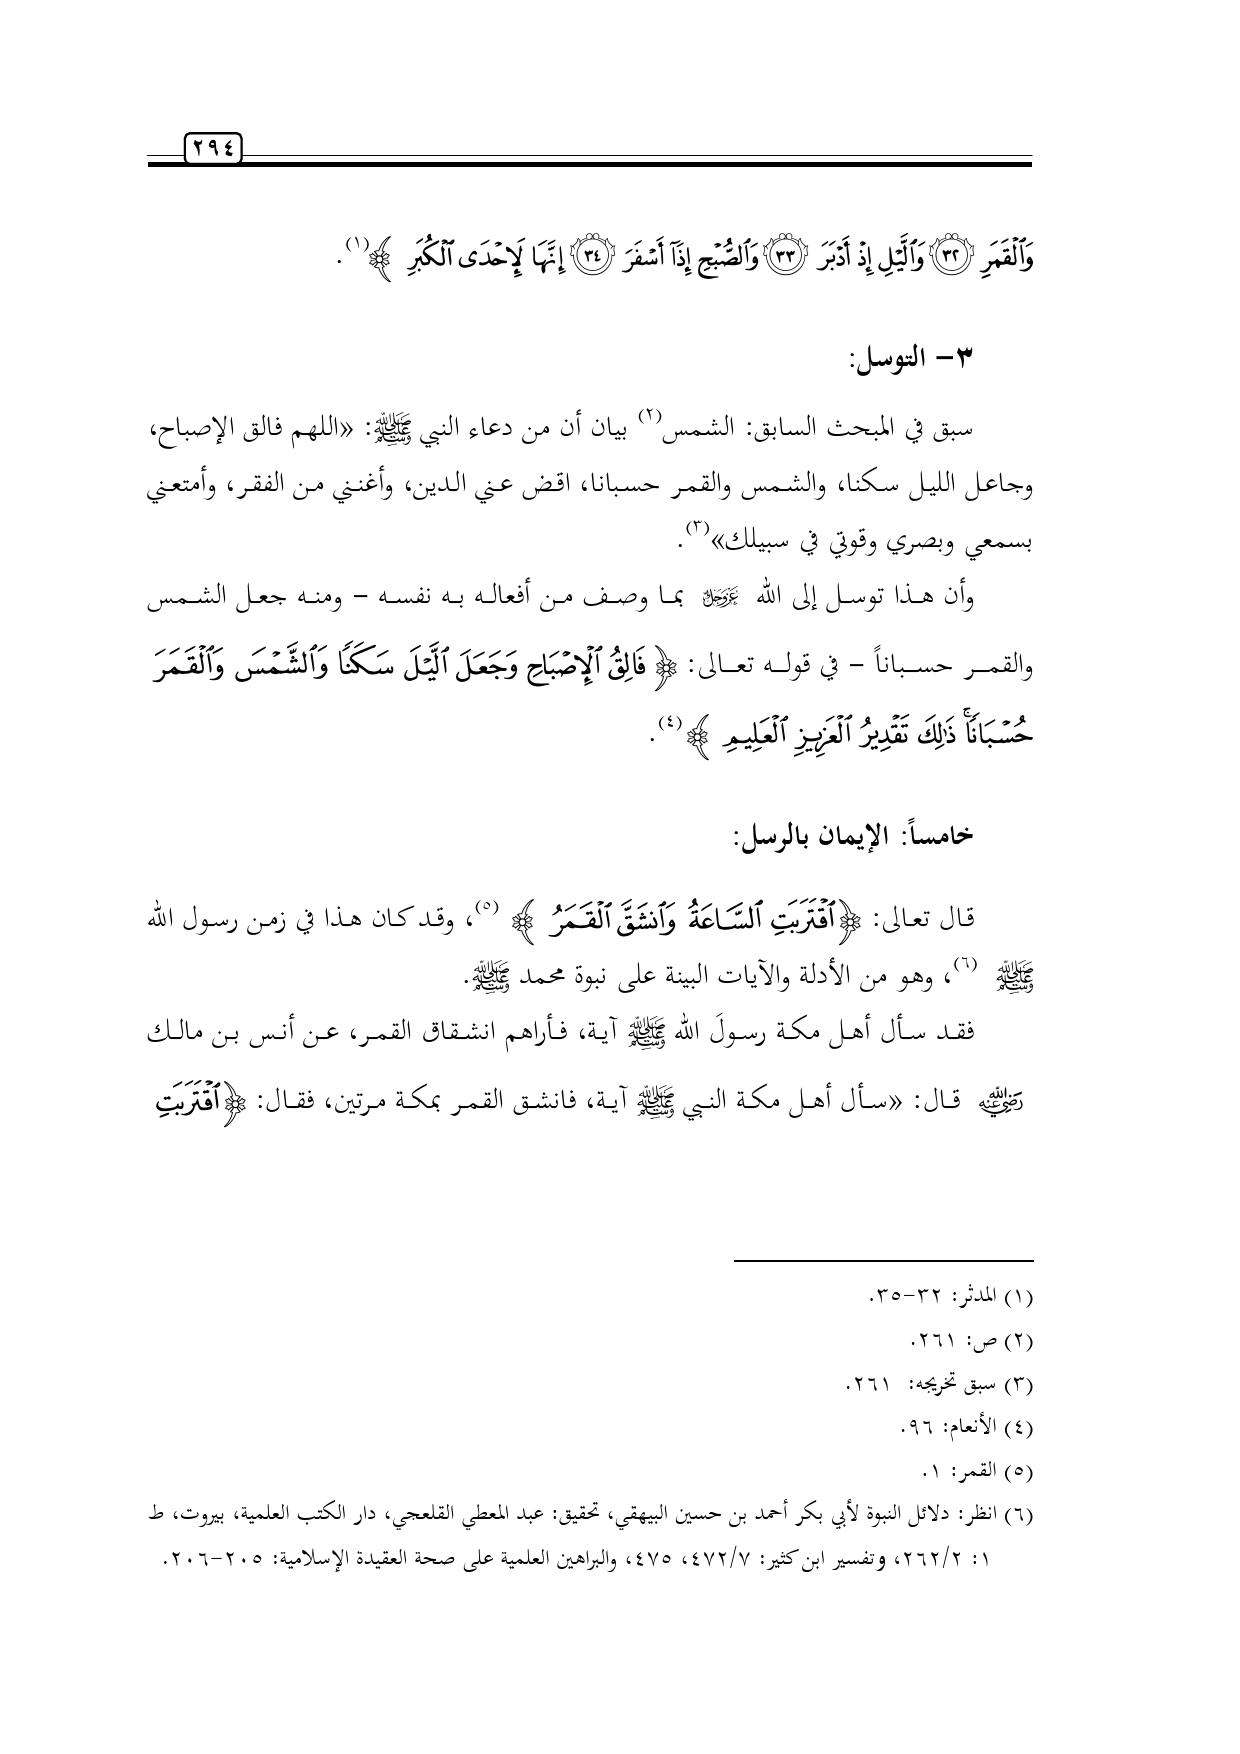 ٢٩٤
وَٱلْقَمَرِ ۝٣٢ وَٱلَّيْلِ إِذْ أَدْبَرَ ۝٣٣ وَٱلصُّبْحِ إِذَآ أَسْفَرَ ۝٣٤ إِنَّهَا لَإِحْدَى ٱلْكُبَرِ ﴾(١).
٣– التوسل:
سبق في المبحث السابق: الشمس(٢) بيان أن من دعاء النبي ﷺ: «اللهم فالق الإصباح،
وجاعل الليل سكنا، والشمس والقمر حسبانا، اقض عني الدين، وأغنني من الفقر، وأمتعني
بسمعي وبصري وقوتي في سبيلك»(٣).
وأن هذا توسل إلى الله عَزَّوَجَلَّ بما وصف من أفعاله به نفسه – ومنه جعل الشمس
والقمر حسباناً – في قوله تعالى: ﴿ فَالِقُ ٱلْإِصْبَاحِ وَجَعَلَ ٱلَّيْلَ سَكَنًا وَٱلشَّمْسَ وَٱلْقَمَرَ
حُسْبَانًاۚ ذَٰلِكَ تَقْدِيرُ ٱلْعَزِيزِ ٱلْعَلِيمِ ﴾(٤).
خامساً: الإيمان بالرسل:
قال تعالى: ﴿ٱقْتَرَبَتِ ٱلسَّاعَةُ وَٱنشَقَّ ٱلْقَمَرُ ﴾ (٥)، وقد كان هذا في زمن رسول الله
ﷺ (٦)، وهو من الأدلة والآيات البينة على نبوة محمد ﷺ.
فقد سأل أهل مكة رسولَ الله ﷺ آية، فأراهم انشقاق القمر، عن أنس بن مالك
رَضِيَ اللهُ عَنْهُ قال: «سأل أهل مكة النبي ﷺ آية، فانشق القمر بمكة مرتين، فقال: ﴿ٱقْتَرَبَتِ
(١) المدثر: ٣٢-٣٥.
(٢) ص: ٢٦١.
(٣) سبق تخريجه: ٢٦١.
(٤) الأنعام: ٩٦.
(٥) القمر: ١.
(٦) انظر: دلائل النبوة لأبي بكر أحمد بن حسين البيهقي، تحقيق: عبد المعطي القلعجي، دار الكتب العلمية، بيروت، ط
١: ٢٦٢/٢، وتفسير ابن كثير: ٤٧٢/٧، ٤٧٥، والبراهين العلمية على صحة العقيدة الإسلامية: ٢٠٥-٢٠٦.